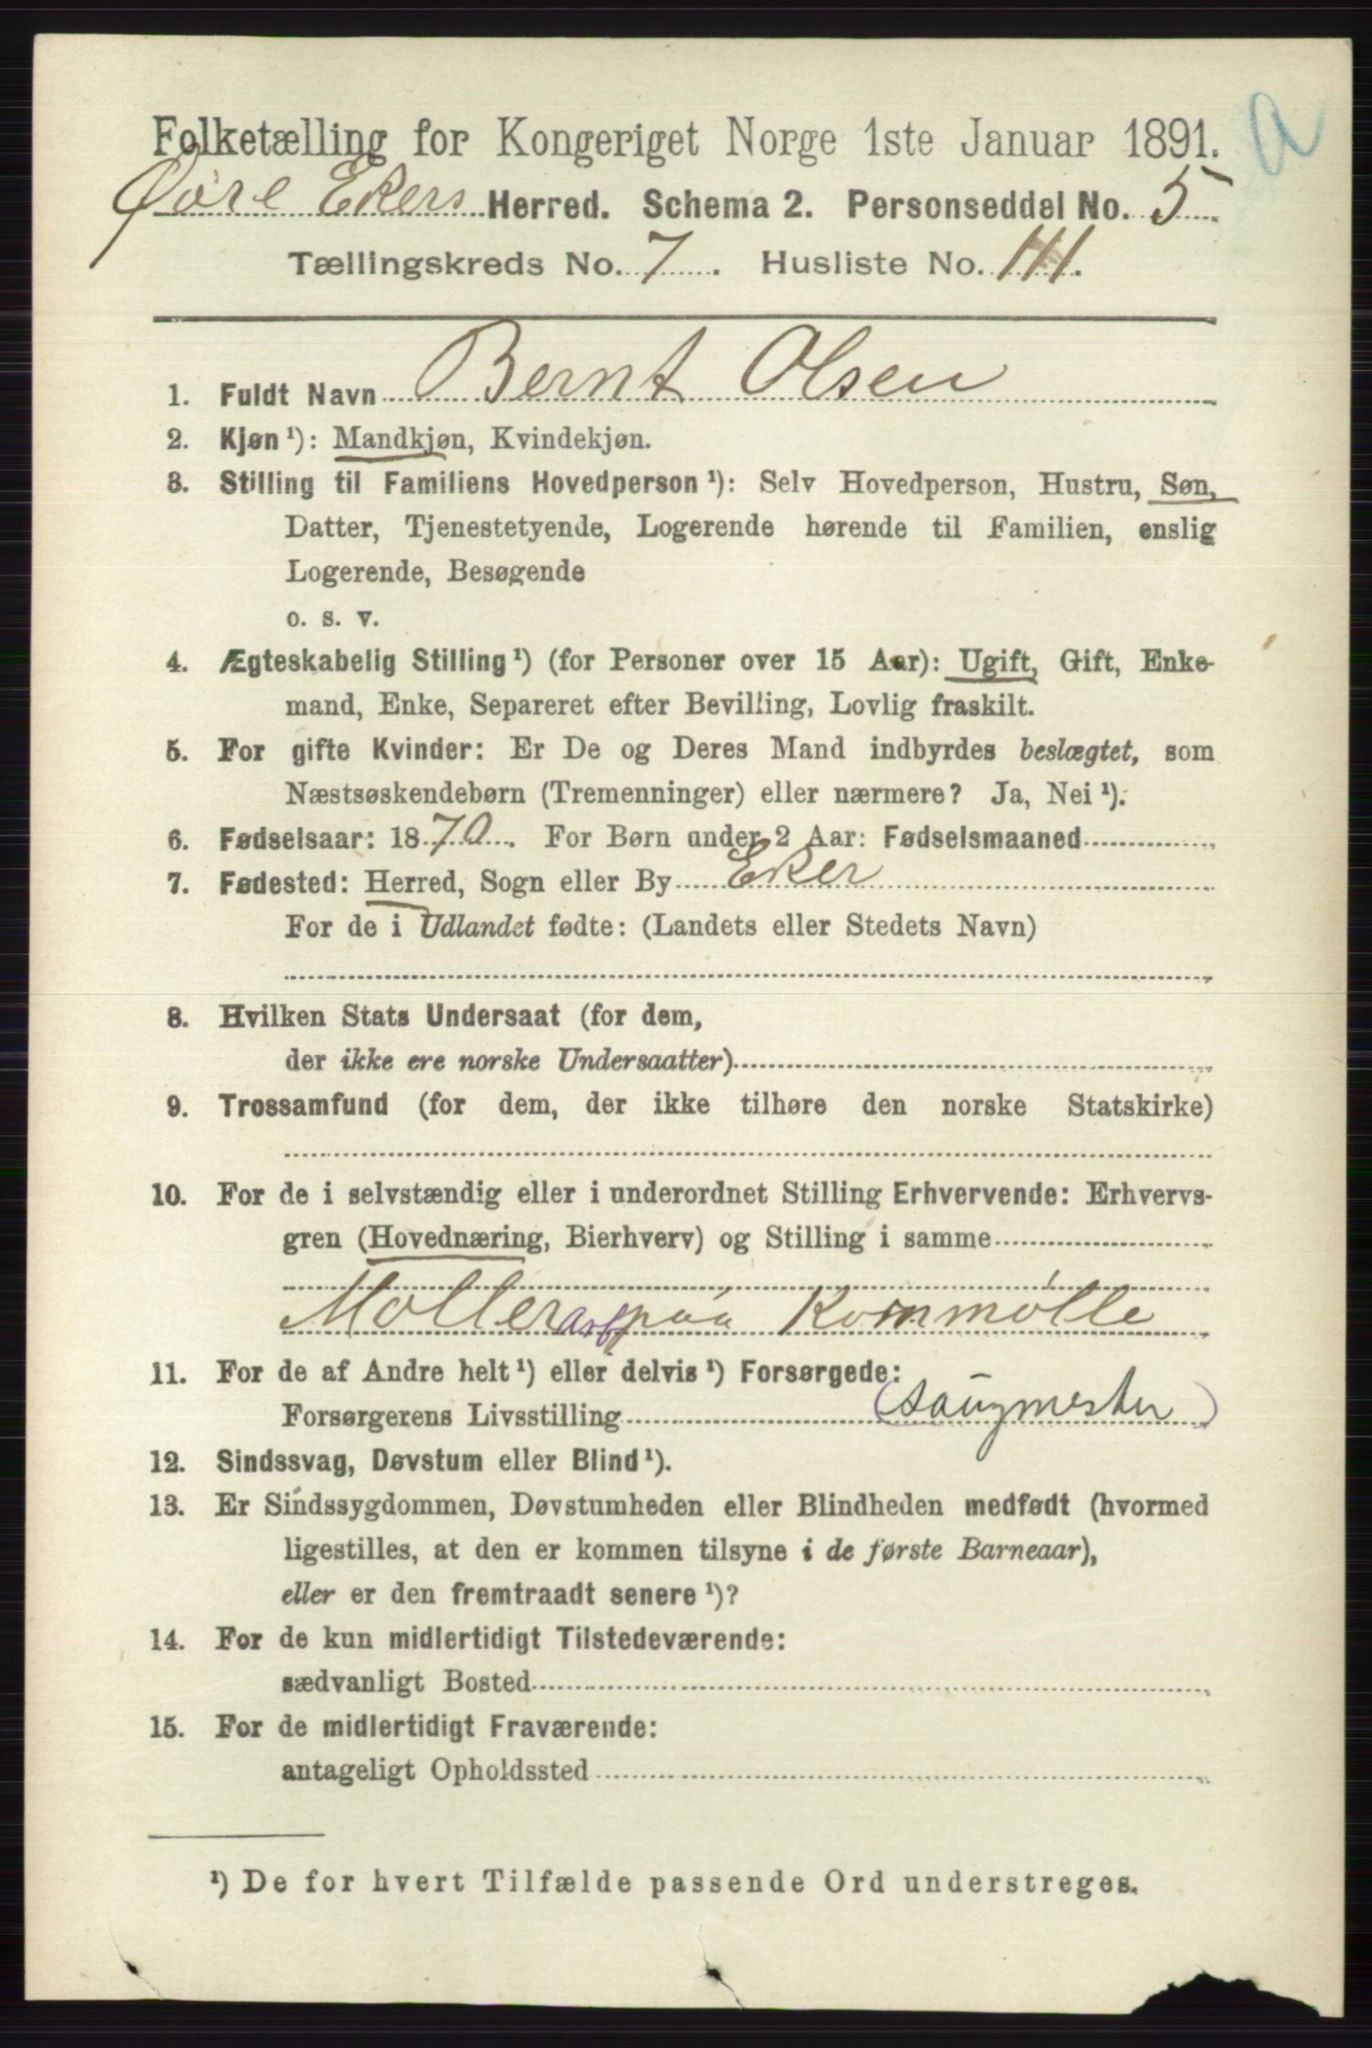 a
Folketælling for Kongeriget Norge 1ste Januar 1891.
Øvre Ekers Herred. Schema 2. Personseddel No. 5
Tællingskreds No. 7. Husliste No. 111.
1. Fuldt Navn Bernt Olsen
2. Kjøn¹): Mandkjøn, Kvindekjøn.
3. Stilling til Familiens Hovedperson¹): Selv Hovedperson, Hustru, Søn,
Datter, Tjenestetyende, Logerende hørende til Familien, enslig
Logerende, Besøgende
o. s. v.
4. Ægteskabelig Stilling¹) (for Personer over 15 Aar): Ugift, Gift, Enke-
mand, Enke, Separeret efter Bevilling, Lovlig fraskilt.
5. For gifte Kvinder: Er De og Deres Mand indbyrdes beslægtet, som
Næstsøskendebørn (Tremenninger) eller nærmere? Ja, Nei¹).
6. Fødselsaar: 1870. For Børn under 2 Aar: Fødselsmaaned
7. Fødested: Herred, Sogn eller By Eker
For de i Udlandet fødte: (Landets eller Stedets Navn)
8. Hvilken Stats Undersaat (for dem,
der ikke ere norske Undersaatter)
9. Trossamfund (for dem, der ikke tilhøre den norske Statskirke)
10. For de i selvstændig eller i underordnet Stilling Erhvervende: Erhvervs-
gren (Hovednæring, Bierhverv) og Stilling i samme
Møller paa Kornmølle
11. For de af Andre helt¹) eller delvis¹) Forsørgede:
Forsørgerens Livsstilling (Saugmester)
12. Sindssvag, Døvstum eller Blind¹).
13. Er Sindssygdommen, Døvstumheden eller Blindheden medfødt (hvormed
ligestilles, at den er kommen tilsyne i de første Barneaar),
eller er den fremtraadt senere¹)?
14. For de kun midlertidigt Tilstedeværende:
sædvanligt Bosted
15. For de midlertidigt Fraværende:
antageligt Opholdssted
¹) De for hvert Tilfælde passende Ord understreges.